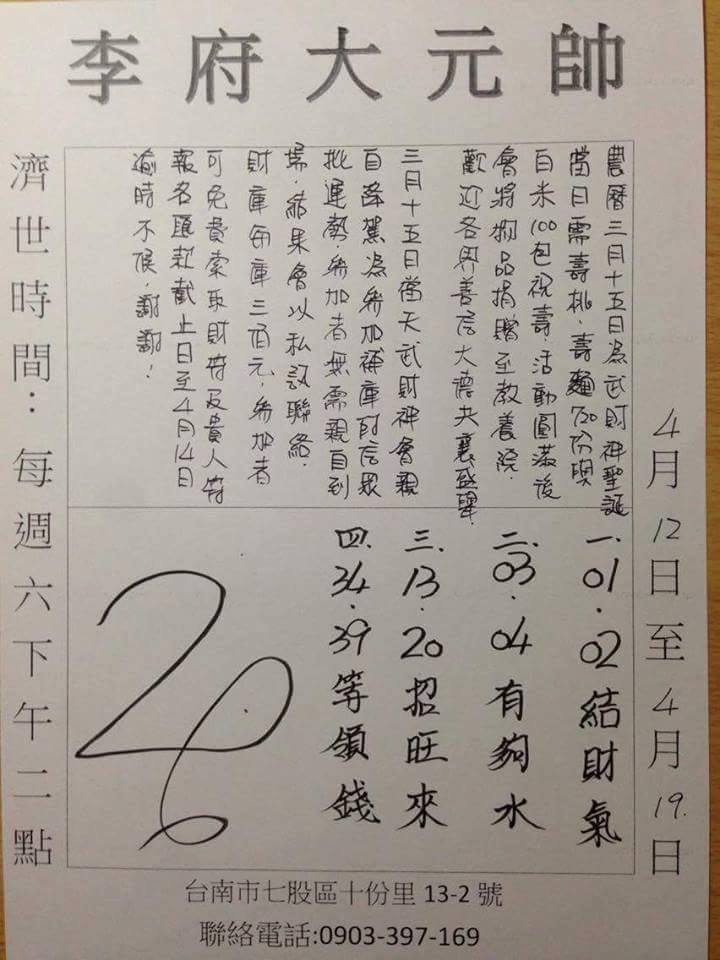 李府大元帥
4月12日至4月19.日
農曆三月十五日為武財神聖誕
當日需壽桃.壽麵720份與
白米100包祝壽.活動圓滿後
會將物品捐贈至教養院.
歡迎各界善信大德共襄盛舉.
三月十五日當天武財神會親
自降駕為參加補庫的信眾
批運勢.參加者無需親自到
場.結果會以私訊聯絡.
財庫每庫三佰元,參加者
可免費索取財符及貴人符
報名匯款截止日至4月14日
逾時不候.謝謝!
一.01.02結財氣
二.03.04有夠水
三.13.20招旺來
四.34.39等領錢
26
濟世時間:每週六下午二點
台南市七股區十份里13-2號
聯絡電話:0903-397-169